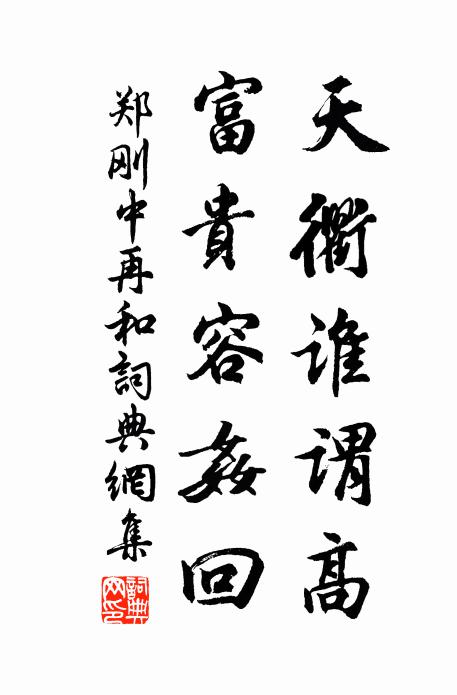 天衢谁謂高
富貴容姦回
郑刚中再和詞典網集
詞典網印